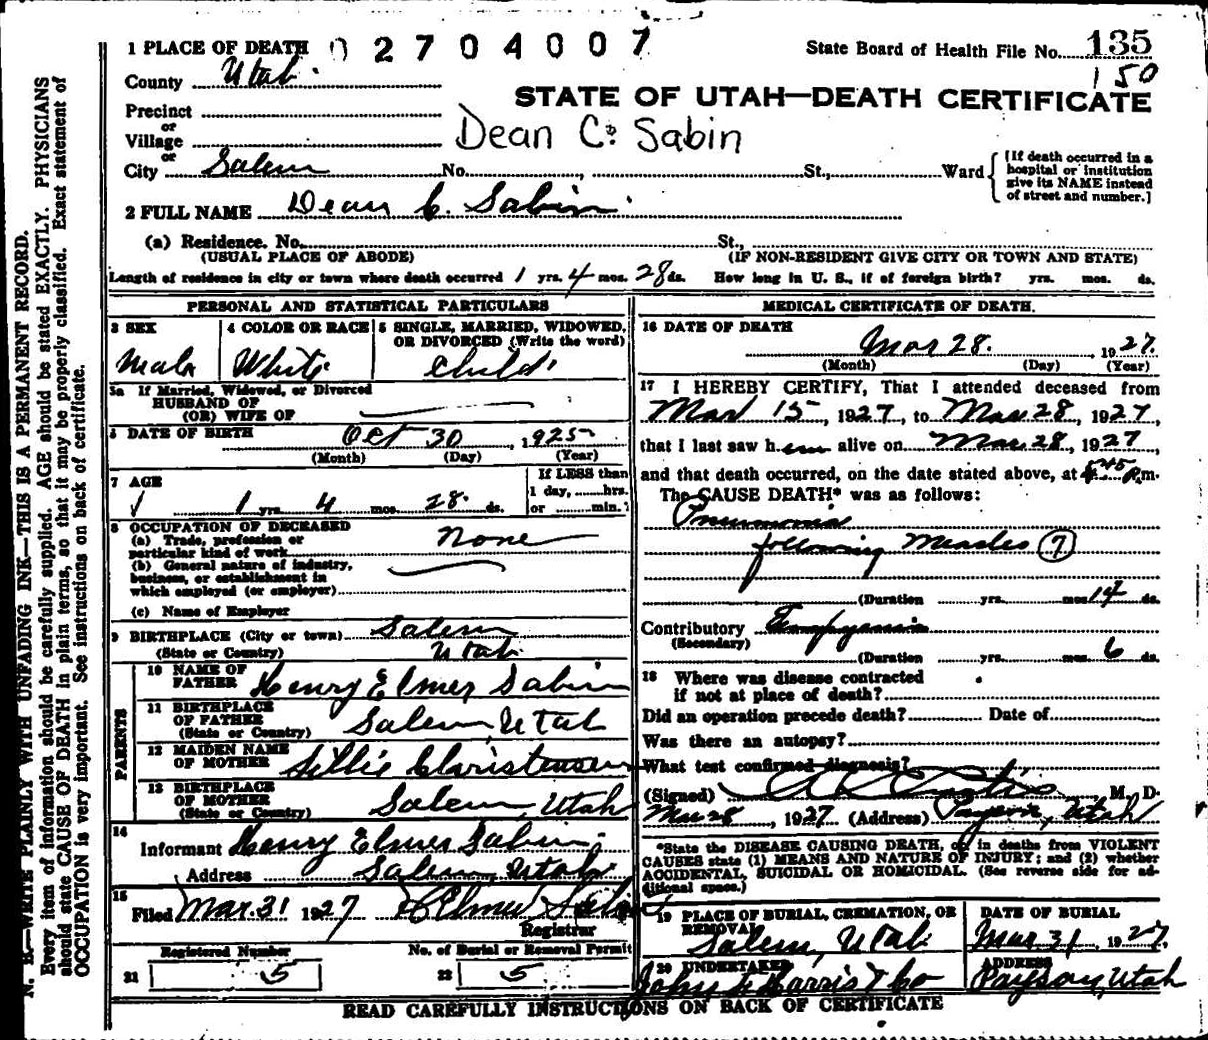 1 PLACE OF DEATH 02704007 State Board of Health File No. 135
County Utah. 150
STATE OF UTAH—DEATH CERTIFICATE
Precinct
or
Village
Dean C. Sabin
or
City Salem No. , St., Ward
[If death occurred in a
hospital or institution
give its NAME instead
of street and number.]
2 FULL NAME Dean C. Sabin
(a) Residence. No. St.,
(USUAL PLACE OF ABODE) (IF NON-RESIDENT GIVE CITY OR TOWN AND STATE)
Length of residence in city or town where death occurred 1 yrs. 4 mos. 28 ds. How long in U. S., if of foreign birth? yrs. mos. ds.
PERSONAL AND STATISTICAL PARTICULARS
3 SEX 4 COLOR OR RACE 5 SINGLE, MARRIED, WIDOWED,
OR DIVORCED (Write the word)
Male White Child
5a If Married, Widowed, or Divorced
HUSBAND OF
(OR) WIFE OF
6 DATE OF BIRTH Oct 30, 1925
(Month) (Day) (Year)
7 AGE If LESS than
1 day, hrs.
1 yrs. 4 mos. 28 ds. or min.?
8 OCCUPATION OF DECEASED
(a) Trade, profession or
particular kind of work None
(b) General nature of industry,
business, or establishment in
which employed (or employer)
(c) Name of Employer
9 BIRTHPLACE (City or town) Salem
(State or Country) Utah
PARENTS
10 NAME OF
FATHER Henry Elmer Sabin
11 BIRTHPLACE
OF FATHER
(State or Country) Salem, Utah
12 MAIDEN NAME
OF MOTHER Lillie Christensen
13 BIRTHPLACE
OF MOTHER
(State or Country) Salem, Utah
14
Informant Henry Elmer Sabin
Address Salem, Utah
15
Filed Mar. 31 1927 H Elmer Sabin
Registrar
Registered Number No. of Burial or Removal Permit
21 5 22 5
MEDICAL CERTIFICATE OF DEATH.
16 DATE OF DEATH
Mar 28. , 1927.
(Month) (Day) (Year)
17 I HEREBY CERTIFY, That I attended deceased from
Mar 15, 1927, to Mar 28, 1927,
that I last saw him alive on Mar. 28, 1927,
and that death occurred, on the date stated above, at P.m.
The CAUSE DEATH* was as follows:
Pneumonia
following Measles 7
(Duration yrs. mos. 14 ds.
Contributory Empyemia
(Secondary)
(Duration yrs. mos. 6 ds.
18 Where was disease contracted
if not at place of death?
Did an operation precede death? Date of
Was there an autopsy?
What test confirmed diagnosis?
(Signed) Curtis M. D.
Mar 28, 1927 (Address) Payson, Utah
*State the DISEASE CAUSING DEATH, or in deaths from VIOLENT
CAUSES state (1) MEANS AND NATURE OF INJURY; and (2) whether
ACCIDENTAL, SUICIDAL OR HOMICIDAL. (See reverse side for ad-
ditional space.)
19 PLACE OF BURIAL, CREMATION, OR
REMOVAL DATE OF BURIAL
Salem, Utah Mar. 31, 1927.
20 UNDERTAKER ADDRESS
Harris & Co Payson, Utah
READ CAREFULLY INSTRUCTIONS ON BACK OF CERTIFICATE
N. B.—WRITE PLAINLY WITH UNFADING INK—THIS IS A PERMANENT RECORD.
Every item of information should be carefully supplied. AGE should be stated EXACTLY. PHYSICIANS
should state CAUSE OF DEATH in plain terms, so that it may be properly classified. Exact statement of
OCCUPATION is very important. See instructions on back of certificate.